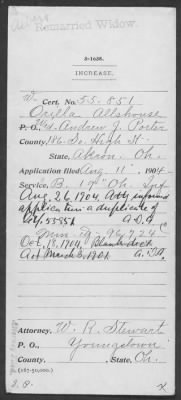 Remarried Widow.
3-1635.
INCREASE.
W. Cert. No. 55.851
Orilla Altshouse
P. O., % Andrew J. Porter
County, 186 So. High St.
State, Akron Oh.
Application filed Aug 11 1904
Service, B. 19" Oh. Inf
Aug. 26, 1904 Atty informed
application a duplicate of
Ctf 53851 A.D.
96724
Oct. 18, 1904, Blank
Act March 3, 1901
Attorney, W. R. Stewart
P. O., Youngstown
County, State, Oh.
(167-50,000.)